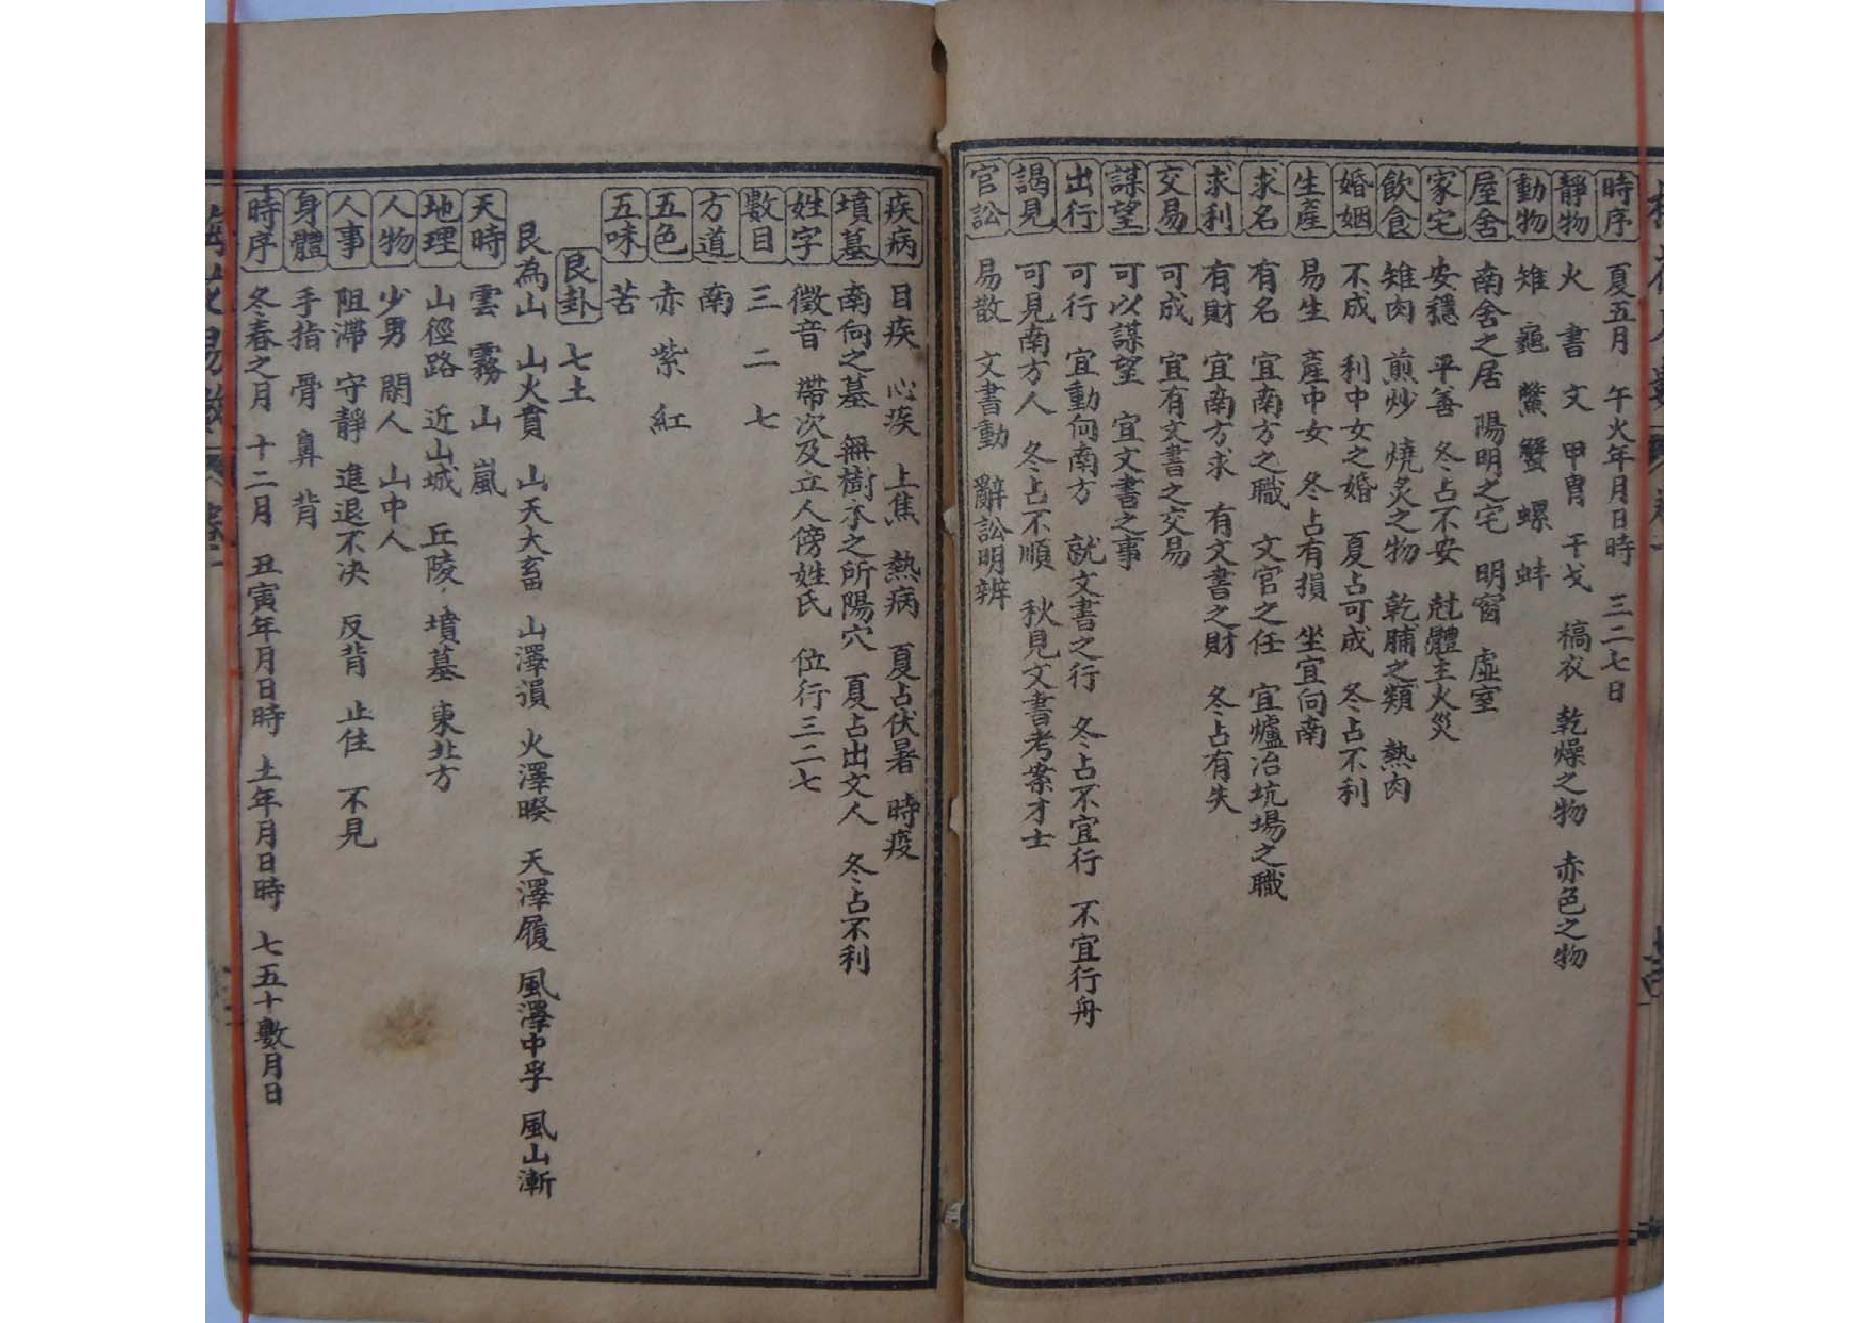 時序 夏五月 午火年月日時 三二七日
靜物 火 書 文 甲冑 干戈 槁衣 乾燥之物 赤色之物
動物 雉 龜 鱉 蟹 螺 蚌
屋舍 南舍之居 陽明之宅 明窗 虛室
家宅 安穩 平善 冬占不安 尅體主火災
飲食 雉肉 煎炒 燒炙之物 乾脯之類 熱肉
婚姻 不成 利中女之婚 夏占可成 冬占不利
生產 易生 產中女 冬占有損 坐宜向南
求名 有名 宜南方之職 文官之任 宜爐冶坑場之職
求利 有財 宜南方求 有文書之財 冬占有失
交易 可成 宜有文書之交易
謀望 可以謀望 宜文書之事
出行 可行 宜動向南方 就文書之行 冬占不宜行 不宜行舟
謁見 可見南方人 冬占不順 秋見文書考案才士
官訟 易散 文書動 辭訟明辨
疾病 目疾 心疾 上焦 熱病 夏占伏暑 時疫
墳墓 南向之墓 無樹木之所陽穴 夏占出文人 冬占不利
姓字 徵音 帶次及立人傍姓氏 位行三二七
數目 三 二 七
方道 南
五色 赤 紫 紅
五味 苦
艮卦 七土
艮為山 山火賁 山天大畜 山澤損 火澤睽 天澤履 風澤中孚 風山漸
天時 雲 霧 山 嵐
地理 山徑路 近山城 丘陵 墳墓 東北方
人物 少男 閒人 山中人
人事 阻滯 守靜 進退不決 反背 止住 不見
身體 手指 骨 鼻 背
時序 冬春之月 十二月 丑寅年月日時 土年月日時 七五十數月日